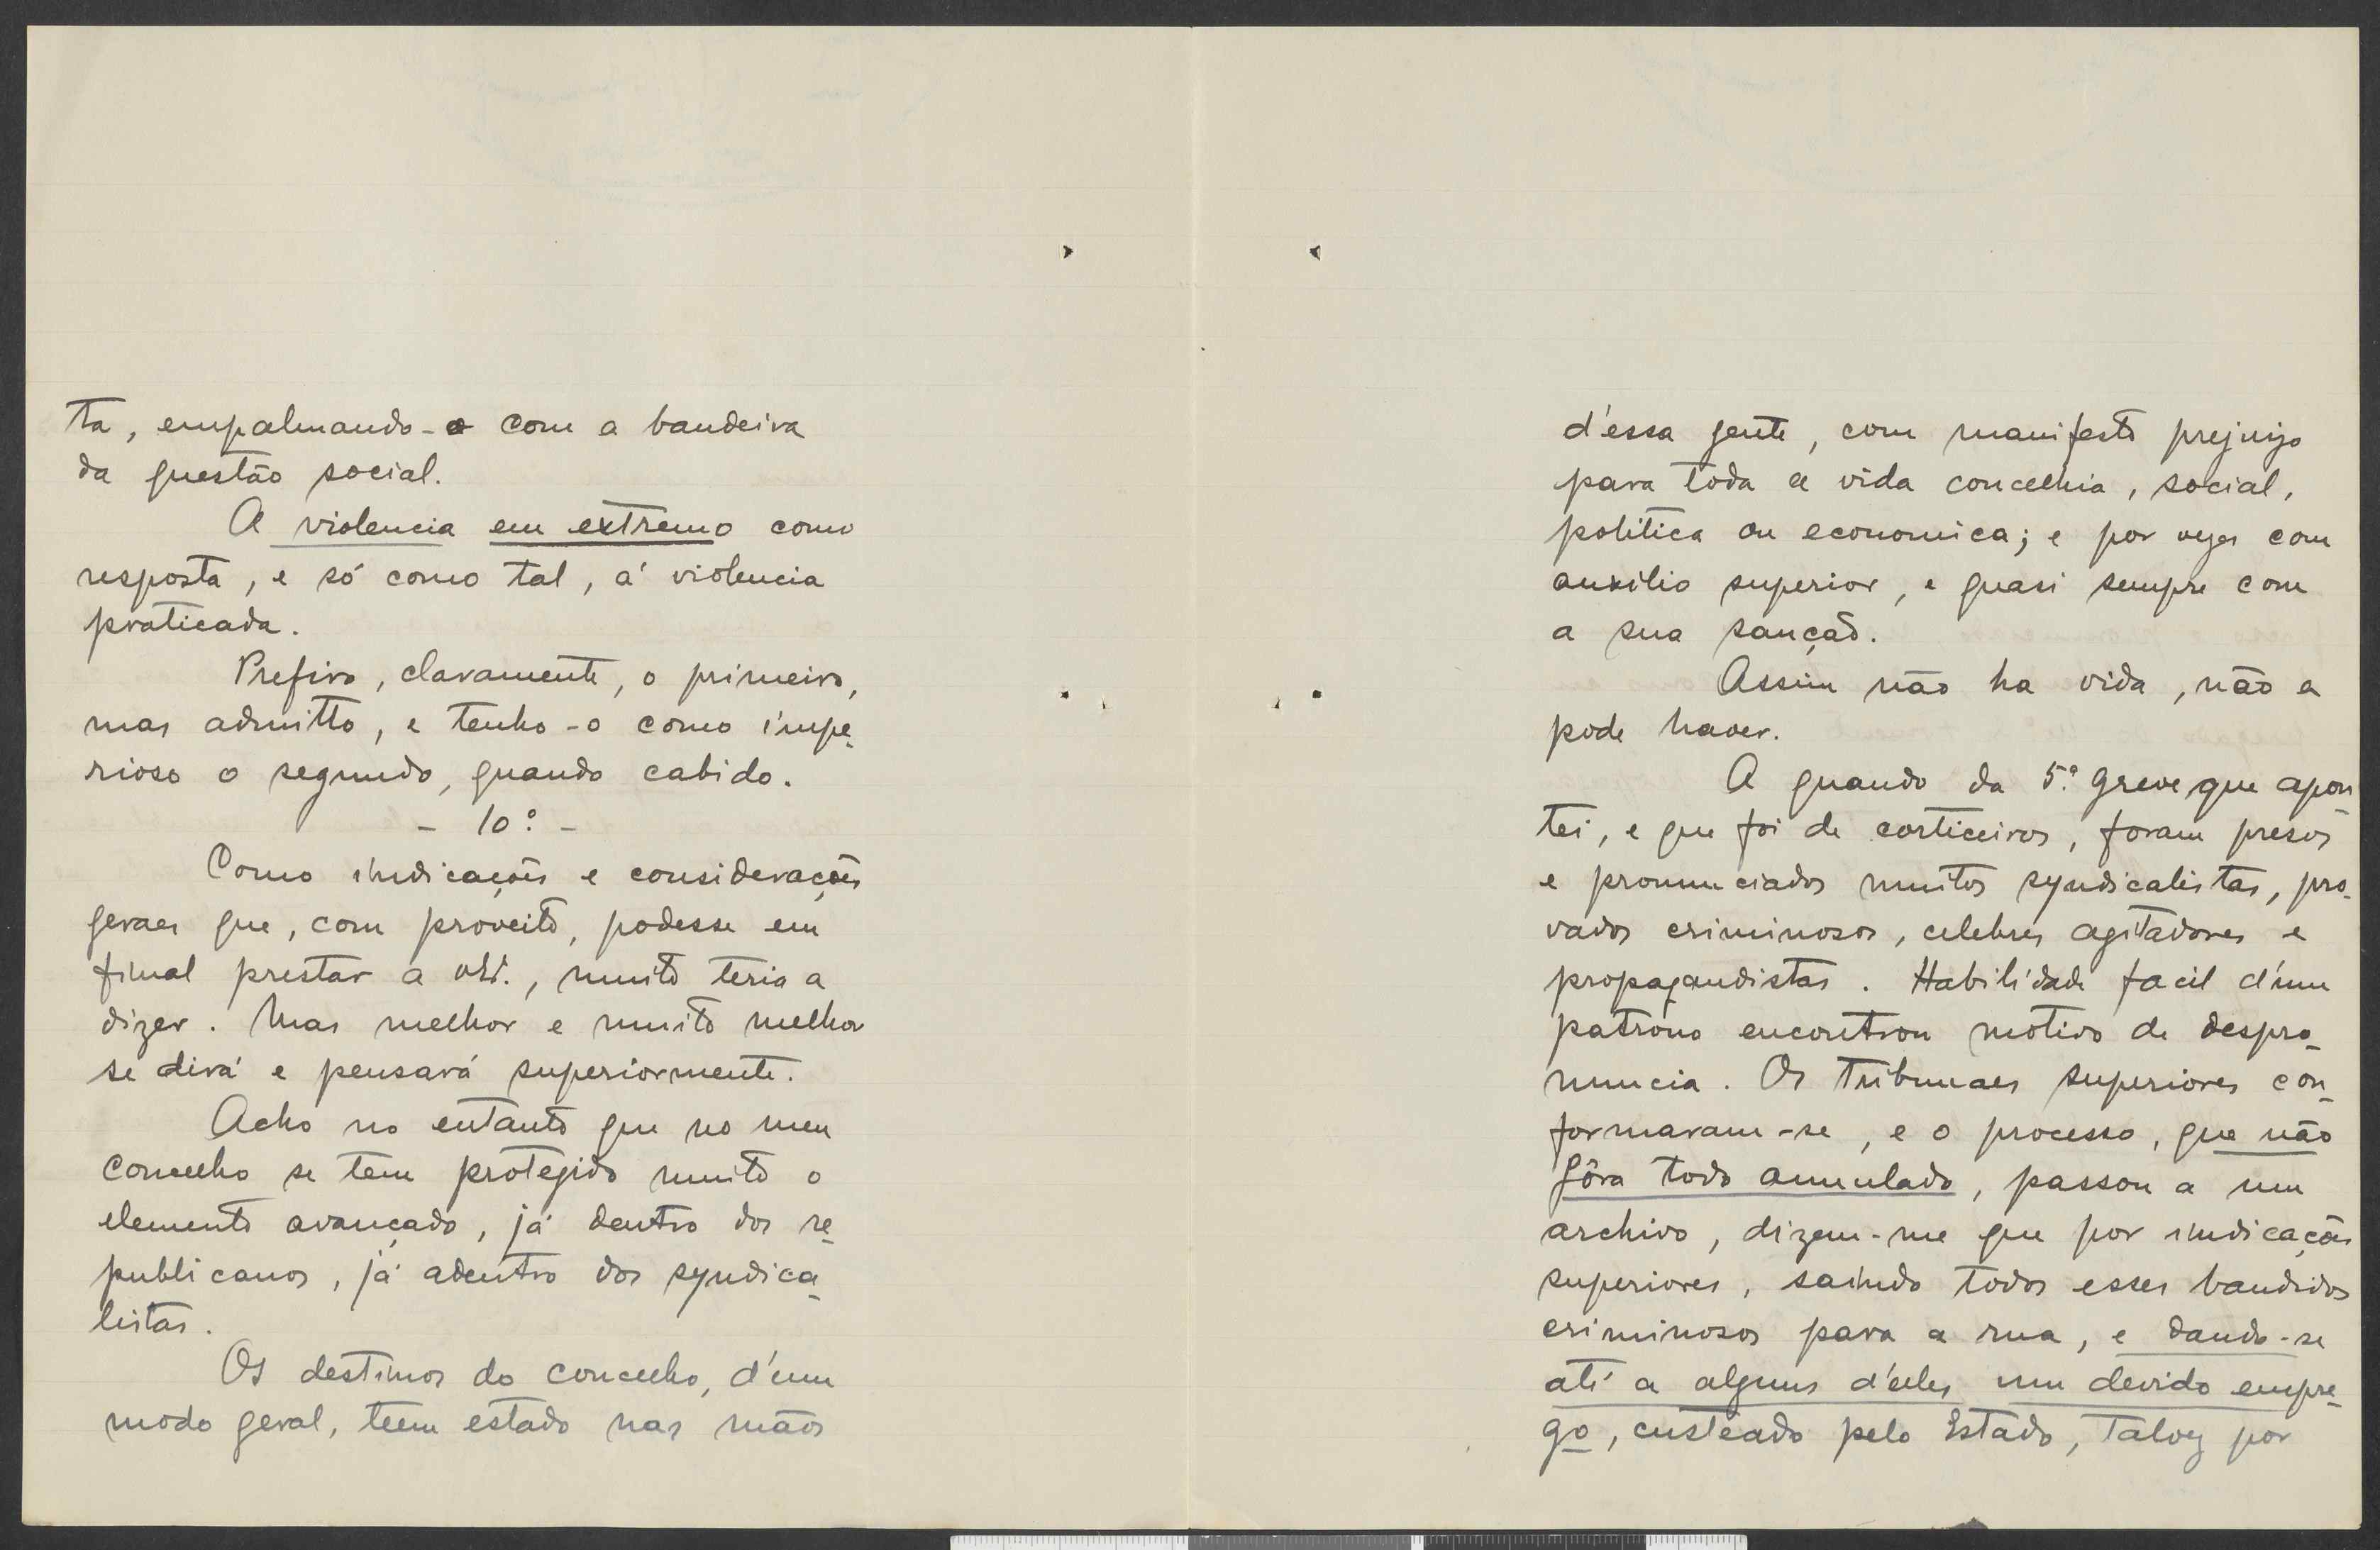 ta, empalmando-o com a bandeira
da questão social.
A violencia em extremo como
resposta, e só como tal, á violencia
praticada.
Prefiro, claramente, o primeiro,
mas admitto, e tenho-o como impe-
rioso o segundo, quando cabido.
- 10º -
Como indicações e considerações
geraes que, com proveito, podesse em
final prestar a, muito teria a
dizer. Mas melhor e muito melhor
se dirá e pensará superiormente.
Acho no entanto que no meu
concelho se tem protegido muito o
elemento avançado, já dentro dos re-
publicanos, já adentro dos syndica-
listas.
Os destinos do concelho, d'um
modo geral, teem estado nas mãos
d'essa gente, com manifesto prejuizo
para toda a vida concelhia, social,
politica ou economica; e por vezes com
auxilio superior, e quasi sempre com
a sua sanção.
Assim não ha vida, não a
pode haver.
A quando da 5ª greve que apon-
tei, e que foi de corticeiros, foram presos
e pronunciados muitos syndicalistas, pro-
vados criminosos, celebres agitadores e
propagandistas. Habilidade facil d'um
patrono encontrou motivo de despro-
nuncia. Os Tribunaes superiores con-
formaram-se, e o processo, que não
fôra todo annulado, passou a um
archivo, dizem-me que por indicações
superiores, saindo todos esses bandidos
criminosos para a rua, e dando-se
até a alguns d'elles um devido empre-
go, custeado pelo Estado, talvez por